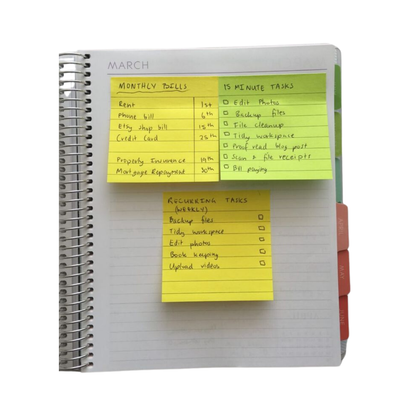 MARCH
MONTHLY BILLS
Rent 1st
Phone bill 6th
Etsy shop bill 15th
Credit Card 25th
Property Insurance 19th
Mortgage Repayment 30th
15 MINUTE TASKS
Edit Photos
Backup files
File cleanup
Tidy workspace
Proof read blog post
Scan + file receipts
Bill paying
RECURRING TASKS
(WEEKLY)
Backup files
Tidy workspace
Edit photos
Book keeping
Upload videos